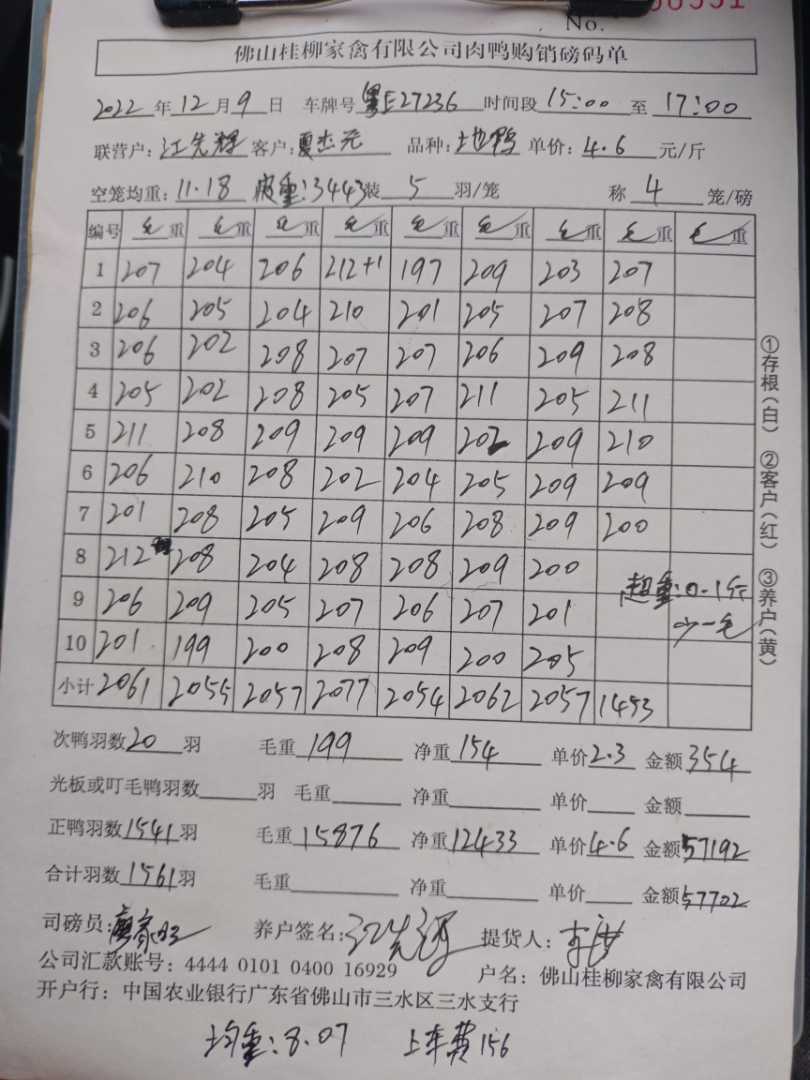 No.
佛山桂柳家禽有限公司肉鸭购销磅码单
2022年12月9日 车牌号粤E27236 时间段15:00至17:00
联营户:江先辉 客户:夏杰元 品种:土地鸭 单价:4.6元/斤
空笼均重:11.18 皮重:3443装5羽/笼 称4笼/磅
编号 毛重 毛重 毛重 毛重 毛重 毛重 毛重 毛重 毛重
1 207 204 206 212+1 197 209 203 207
2 206 205 204 210 201 205 207 208
3 206 202 208 207 207 206 209 208
4 205 202 208 205 207 211 205 211
5 211 208 209 209 209 202 209 210
6 206 210 208 202 204 205 209 209
7 201 208 205 209 206 208 209 200
8 212 208 204 208 208 209 200
超重:0.1斤
9 206 209 205 207 206 207 201
少一毛
10 201 199 200 208 209 200 205
小计 2061 2055 2057 2077 2054 2062 2057 1453
①存根(白) ②客户(红) ③养户(黄)
次鸭羽数20羽 毛重199 净重154 单价2.3 金额354
光板或叮毛鸭羽数羽 毛重 净重 单价 金额
正鸭羽数1541羽 毛重15876 净重12433 单价4.6 金额57192
合计羽数1561羽 毛重 净重 单价 金额57702
司磅员:廖家旺 养户签名:江先辉 提货人:
公司汇款账号:4444 0101 0400 16929 户名:佛山桂柳家禽有限公司
开户行:中国农业银行广东省佛山市三水区三水支行
均重:8.07 上车费156